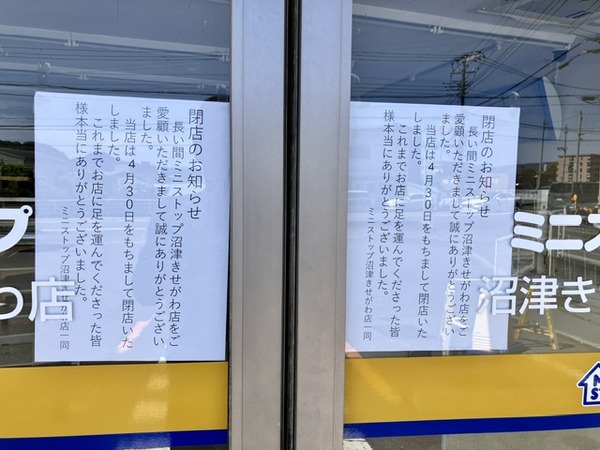 閉店のお知らせ
長い間ミニストップ沼津きせがわ店をご
愛顧いただきまして誠にありがとうござい
ました。
当店は4月30日をもちまして閉店いた
しました。
これまでお店に足を運んでくださった皆
様本当にありがとうございました。
ミニストップ沼津きせがわ店一同
プ
わ店
閉店のお知らせ
長い間ミニストップ沼津きせがわ店をご
愛顧いただきまして誠にありがとうござい
ました。
当店は4月30日をもちまして閉店いた
しました。
これまでお店に足を運んでくださった皆
様本当にありがとうございました。
ミニストップ沼津きせがわ店一同
ミニス
沼津き